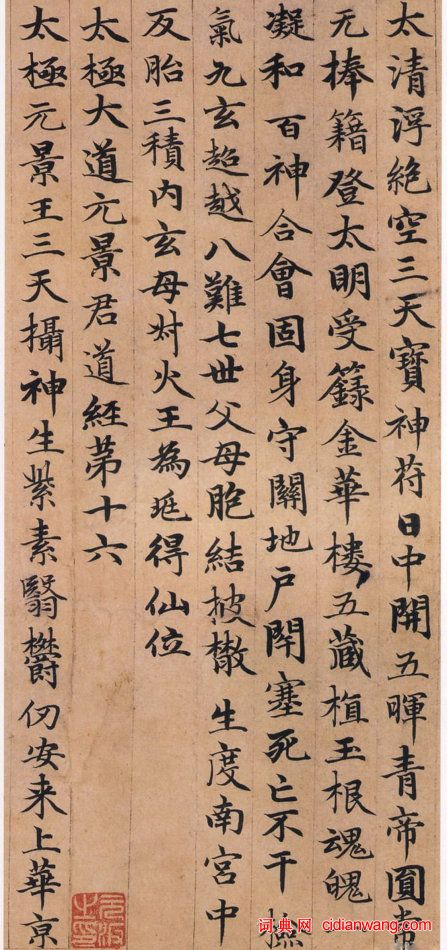 太清浮絕空三天寶神苻日中開五暉青帝圓常
无捧籍登太明受籙金華樓五藏植玉根魂魄
凝和百神合會固身守關地戶閇塞死亡不干
氣九玄超越八難七世父母胞結披散生度南宮中
反胎三積内玄母對火王為延得仙位
太極大道元景君道經苐十六
太極元景王三天攝神生紫素翳欝仞安来上華京
词典网 cidianwang.com